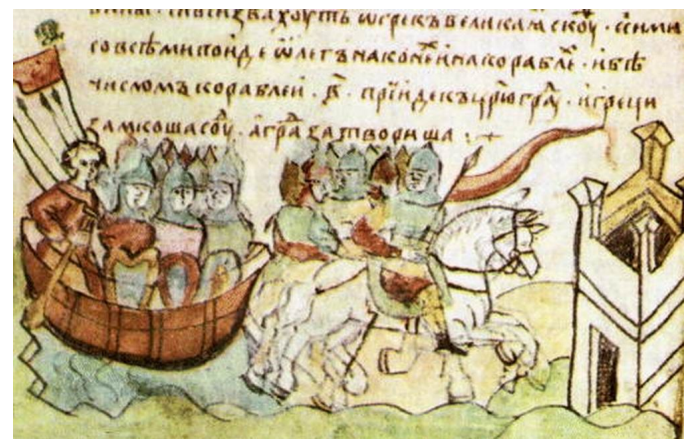 звахоуть ѿ грекъ великаꙗ скоуⷴ · с сими
со всѣми поиде ѡлегъ на конеⷯ и на кораблеⷯ · и бѣ
числомъ кораблеи · в҃ · прїиде къ црⷭ҇юграⷣ · и греци
замкоша соуⷣ · а граⷣ затвориша :· +